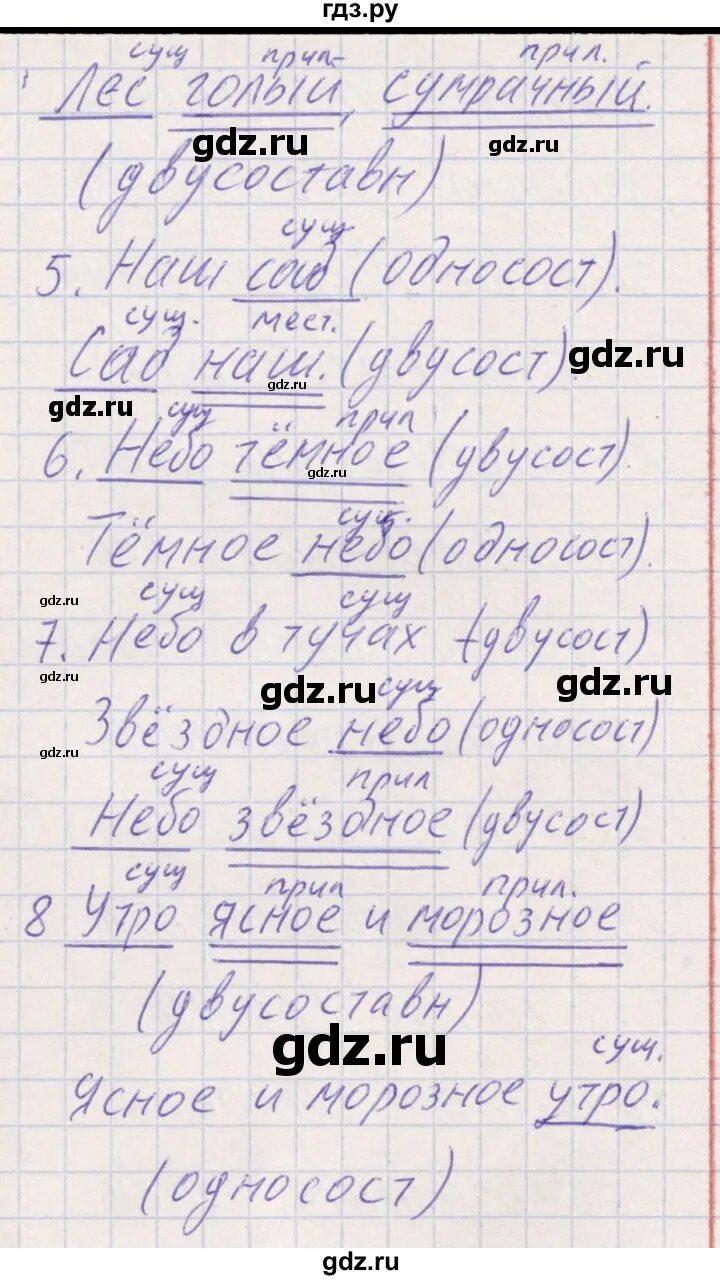 гдз.ру
сущ прил. прил.
Лес голый, сумрачный.
gdz.ru gdz.ru
(двусоставн)
сущ
5. Наш сад (односост).
сущ. мест.
Сад наш. (двусост)
gdz.ru gdz.ru gdz.ru
сущ прил
6. Небо тёмное (двусост).
gdz.ru
сущ.
Тёмное небо (односост).
gdz.ru сущ сущ
7. Небо в тучах (двусост)
gdz.ru gdz.ru gdz.ru
сущ
Звёздное небо (односост)
gdz.ru
сущ прил
Небо звёздное (двусост)
сущ прил прил.
8 Утро ясное и морозное
(двусоставн)
gdz.ru
сущ.
Ясное и морозное утро.
(односост)
gdz.ru